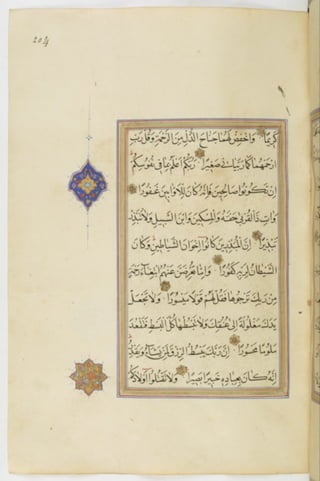 204
كَرِيمًا وَاخْفِضْ لَهُمَا جَنَاحَ الذُّلِّ مِنَ الرَّحْمَةِ وَقُل رَبِّ
ارْحَمْهُمَا كَمَا رَبَّيَانِي صَغِيرًا رَبُّكُمْ أَعْلَمُ بِمَا فِي نُفُوسِكُمْ
إِنْ تَكُونُوا صَالِحِينَ فَإِنَّهُ كَانَ لِلْأَوَّابِينَ غَفُورًا
وَآتِ ذَا الْقُرْبَى حَقَّهُ وَالْمِسْكِينَ وَابْنَ السَّبِيلِ وَلَا تُبَذِّرْ
تَبْذِيرًا إِنَّ الْمُبَذِّرِينَ كَانُوا إِخْوَانَ الشَّيَاطِينِ وَكَانَ
الشَّيْطَانُ لِرَبِّهِ كَفُورًا وَإِمَّا تُعْرِضَنَّ عَنْهُمُ ابْتِغَاءَ رَحْمَةٍ
مِنْ رَبِّكَ تَرْجُوهَا فَقُلْ لَهُمْ قَوْلًا مَيْسُورًا وَلَا تَجْعَلْ
يَدَكَ مَغْلُولَةً إِلَى عُنُقِكَ وَلَا تَبْسُطْهَا كُلَّ الْبَسْطِ فَتَقْعُدَ
مَلُومًا مَحْسُورًا إِنَّ رَبَّكَ يَبْسُطُ الرِّزْقَ لِمَنْ يَشَاءُ وَيَقْدِرُ
إِنَّهُ كَانَ بِعِبَادِهِ خَبِيرًا بَصِيرًا وَلَا تَقْتُلُوا أَوْلَادَكُمْ